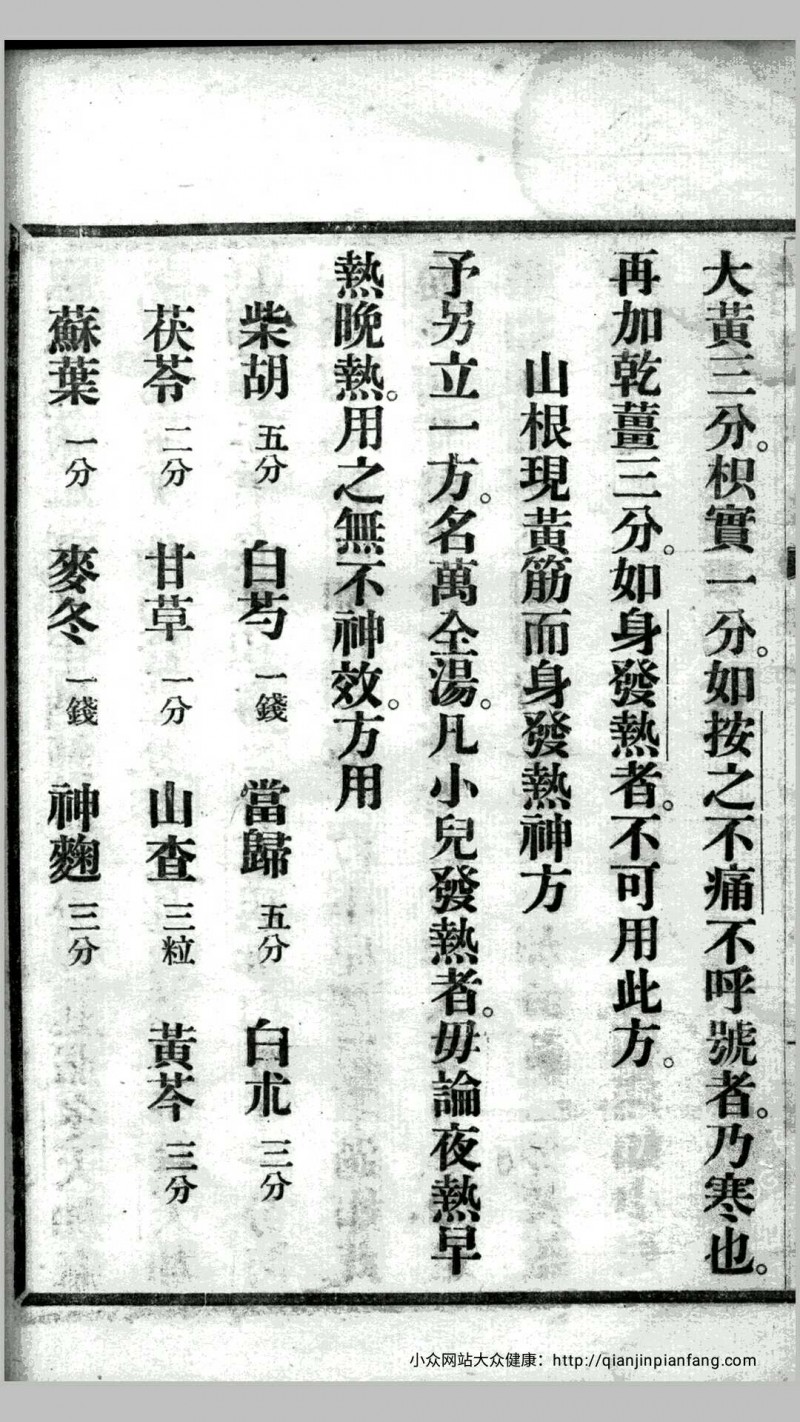 大黃三分。枳實一分。如按之不痛不呼號者。乃寒也。
再加乾薑三分。如身發熱者。不可用此方。
山根現黃筋而身發熱神方
予另立一方。名萬全湯。凡小兒發熱者。毋論夜熱早
熱晚熱。用之無不神效。方用
柴胡 五分 白芍 一錢 當歸 五分 白朮 三分
茯苓 二分 甘草 一分 山查 三粒 黃芩 三分
蘇葉 一分 麥冬 一錢 神麴 三分
小众网站大众健康：http://qianjinpianfang.com